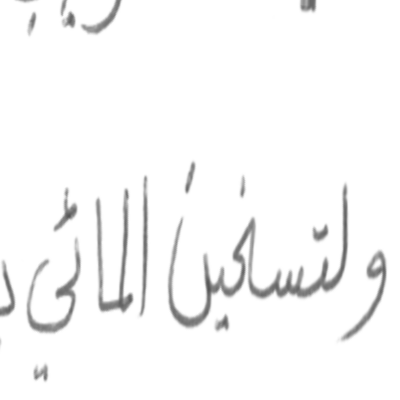 ولتسخين المائي